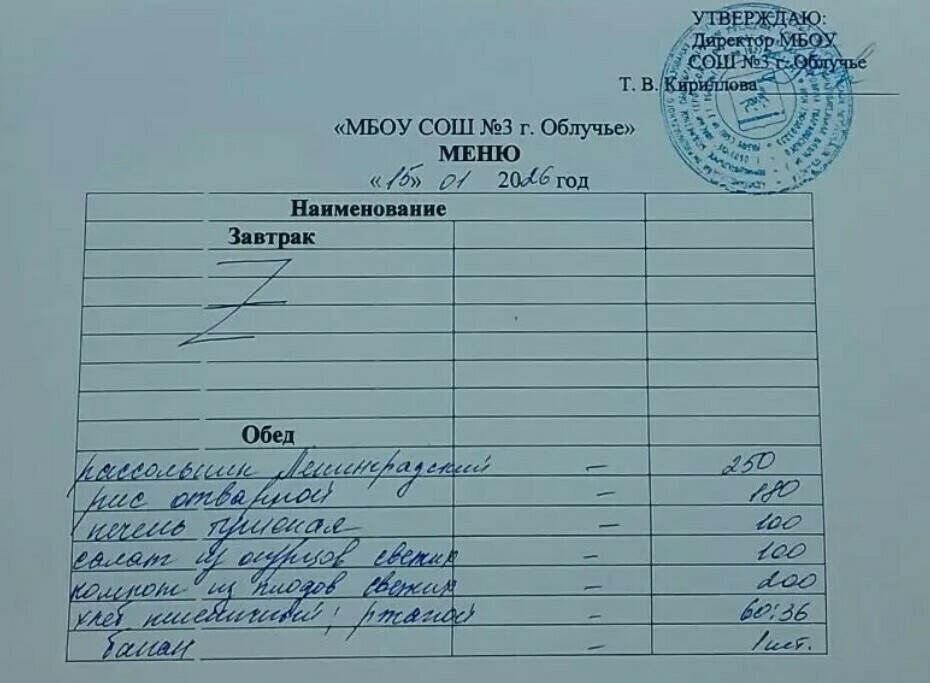 УТВЕРЖДАЮ:
Директор МБОУ
СОШ №3 г. Облучье
Т. В. Кириллова
«МБОУ СОШ №3 г. Облучье»
МЕНЮ
«15» 01 2026 год
Наименование
Завтрак
Z
Обед
рассольник Ленинградский – 250
рис отварной – 180
печень тушеная – 100
салат из огурцов свежих – 100
компот из плодов свежих – 200
хлеб пшеничный; ржаной – 60:36
банан – 1 шт.